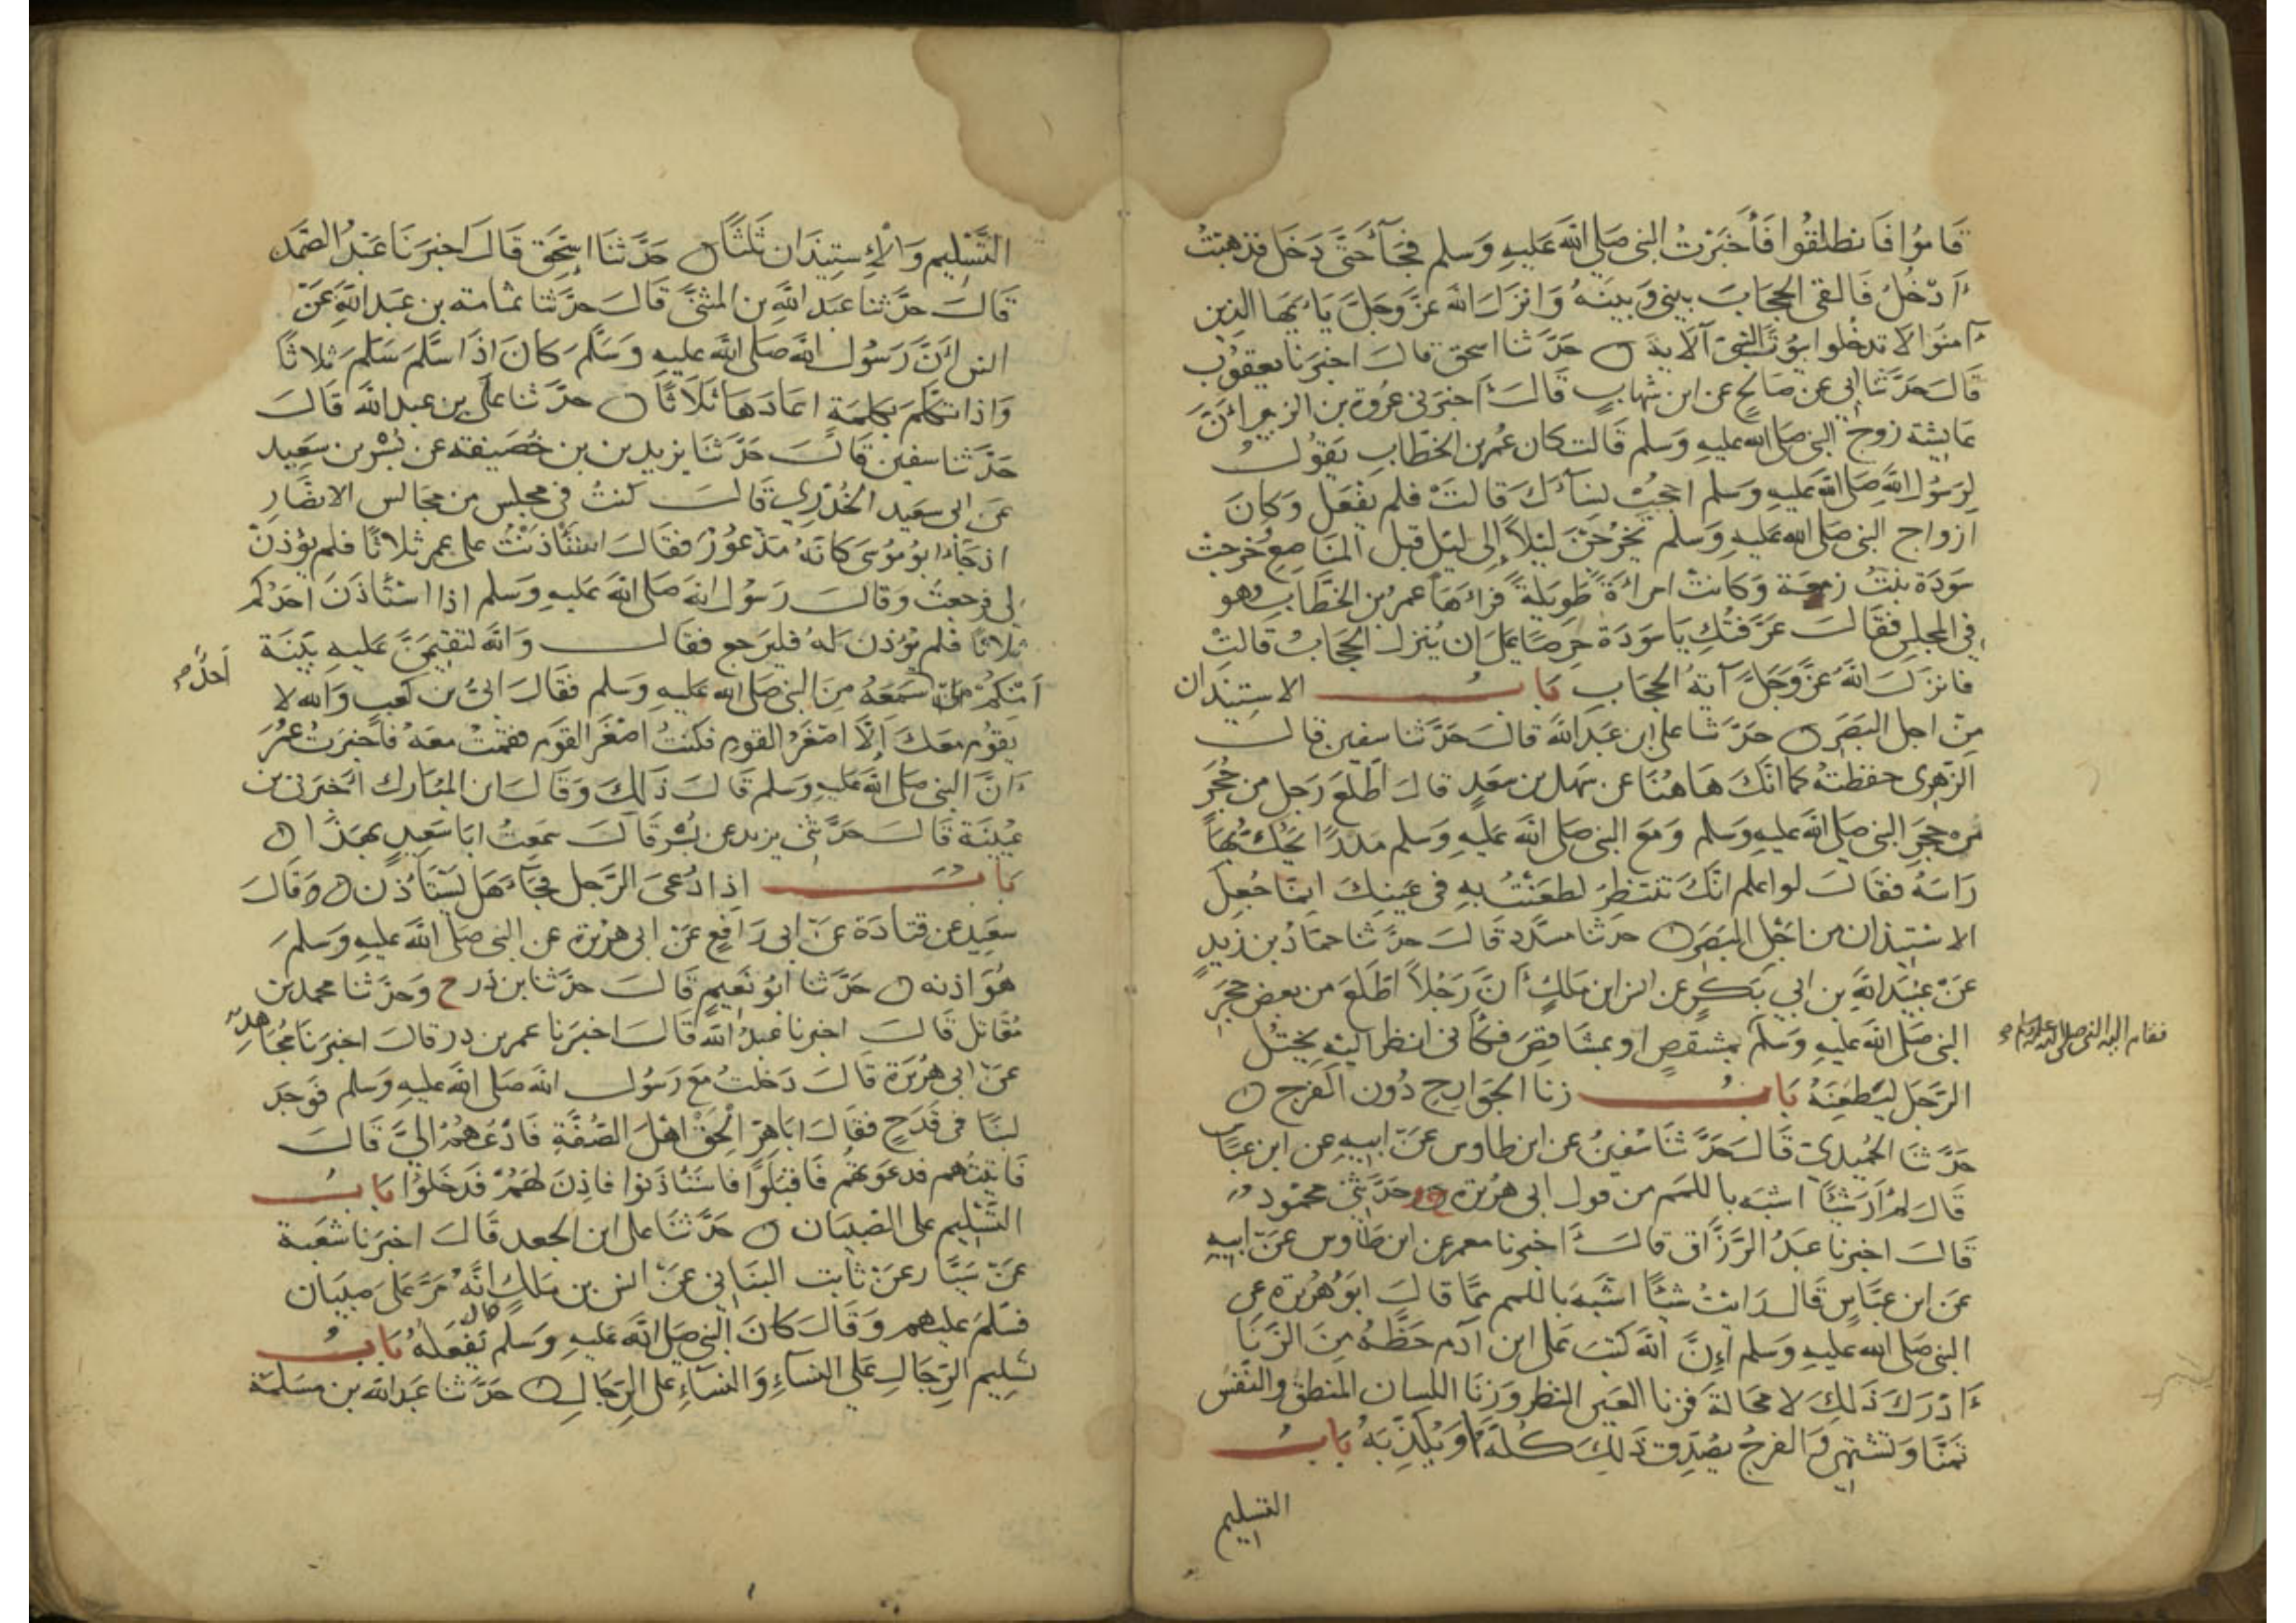 قاموا فانطلقوا فأخبرت النبي صلى الله عليه وسلم فجآء حتى دخل فذهبت
أدخل فالقى الحجاب بيني وبينه وانزل الله عز وجل يا يها الذين
ءامنوا لا تدخلوا بيوت النبي الآية حدثنا اسحق قال اخبرنا يعقوب
قال حدثنا ابي عن صالح عن ابن شهاب قال أخبرني عروة بن الزبير أن
عايشة زوج النبي صلى الله عليه وسلم قالت كان عمر بن الخطاب يقول
لرسول الله صلى الله عليه وسلم احجب نسآءك قالت فلم يفعل وكان
ازواج النبي صلى الله عليه وسلم يخرجن ليلاً إلى ليل قبل المناصع فخرجت
سودة بنت زمعة وكانت امرأة طويلة فرآها عمر بن الخطاب وهو
في المجلس فقال عرفتك يا سودة حرصا على ان ينزل الحجاب قالت
فانزل الله عز وجل آية الحجاب باب الاستيذان
من اجل البصر حدثنا علي ابن عبد الله قال حدثنا سفين قال
الزهري حفظته كما انك هاهنا عن سهل بن سعد قال اطلع رجل من جحر
من حجر النبي صلى الله عليه وسلم ومع النبي صلى الله عليه وسلم مدرا يحك بها
راسه فقال لو اعلم انك تنتظر لطعنت به في عينك انما جعل
الاستيذان من اجل البصر حدثنا مسدد قال حدثنا حماد بن زيد
عن عبيد الله بن ابي بكر عن انس ابن ملك أن رجلاً اطلع من بعض حجر
النبي صلى الله عليه وسلم بمشقص او بمشاقص فكأني انظر اليه يختل
فقام اليه النبي صلى الله عليه وسلم صح
الرجل ليطعنه باب زنا الجوارح دون الفرج
حدثنا الحميدي قال حدثنا سفين عن ابن طاوس عن ابيه عن ابن عباس
قال لم أر شيئا اشبه باللمم من قول ابي هريرة ح وحدثني محمود
قال اخبرنا عبد الرزاق قال أخبرنا معمر عن ابن طاوس عن ابيه
عن ابن عباس قال ما رايت شيئا اشبه باللمم مما قال ابو هريرة عن
النبي صلى الله عليه وسلم إن الله كتب على ابن آدم حظه من الزنا
ءادرك ذلك لا محالة فزنا العين النظر وزنا اللسان المنطق والنفس
تمنا وتشتهي والفرج يصدق ذلك كله او يكذبه باب
التسليم
التسليم والإستيذان ثلثا حدثنا اسحق قال اخبرنا عبد الصمد
قال حدثنا عبد الله بن المثنى قال حدثنا ثمامة بن عبد الله عن
انس أن رسول الله صلى الله عليه وسلم كان اذا سلم سلم ثلاثا
واذا تكلم بكلمة اعادها ثلاثا حدثنا علي بن عبد الله قال
حدثنا سفين قال حدثنا يزيد بن بن خصيفه عن بسر بن سعيد
عن ابي سعيد الخدري قال كنت في مجلس من مجالس الانصار
اذ جآء ابو موسى كانه مذعور فقال استأذنت على عمر ثلاثا فلم يؤذن
لي فرجعت وقال رسول الله صلى الله عليه وسلم اذا استأذن احدكم
ثلاثا فلم يؤذن له فليرجع فقال والله لتقيمن عليه بينة
احد صح
أمنكم سمعه من النبي صلى الله عليه وسلم فقال ابي بن كعب والله لا
يقوم معك إلا اصغر القوم فكنت اصغر القوم فقمت معه فاخبرت عمر
ءان النبي صلى الله عليه وسلم قال ذلك وقال ابن المبارك أخبرني بن
عيينة قال حدثني يزيد عن بسر قال سمعت ابا سعيد بهذا
باب اذا دعي الرجل فجآء هل يستأذن وقال
سعيد عن قتادة عن ابي رافع عن ابي هريرة عن النبي صلى الله عليه وسلم
هو اذنه حدثنا ابو نعيم قال حدثنا بن ذر ح وحدثنا محمد بن
مقاتل قال اخبرنا عبد الله قال اخبرنا عمر بن ذر قال اخبرنا مجاهد
عن ابي هريرة قال دخلت مع رسول الله صلى الله عليه وسلم فوجد
لبنا في قدح فقال اباهر الحق اهل الصفة فادعهم الي قال
فاتيتهم فدعوتهم فاقبلوا فاستأذنوا فاذن لهم فدخلوا باب
التسليم على الصبيان حدثنا علي ابن الجعد قال اخبرنا شعبة
عن سيار عن ثابت البناني عن انس بن ملك انه مر على صبيان
فسلم عليهم وقال كان النبي صلى الله عليه وسلم يفعله باب
تسليم الرجال على النسآء والنسآء على الرجال حدثنا عبد الله بن مسلمة